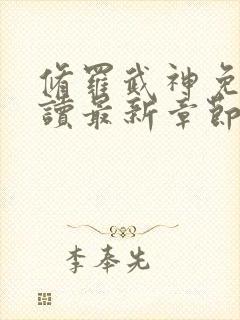 脩羅武神免
讀最新章節
李奉先